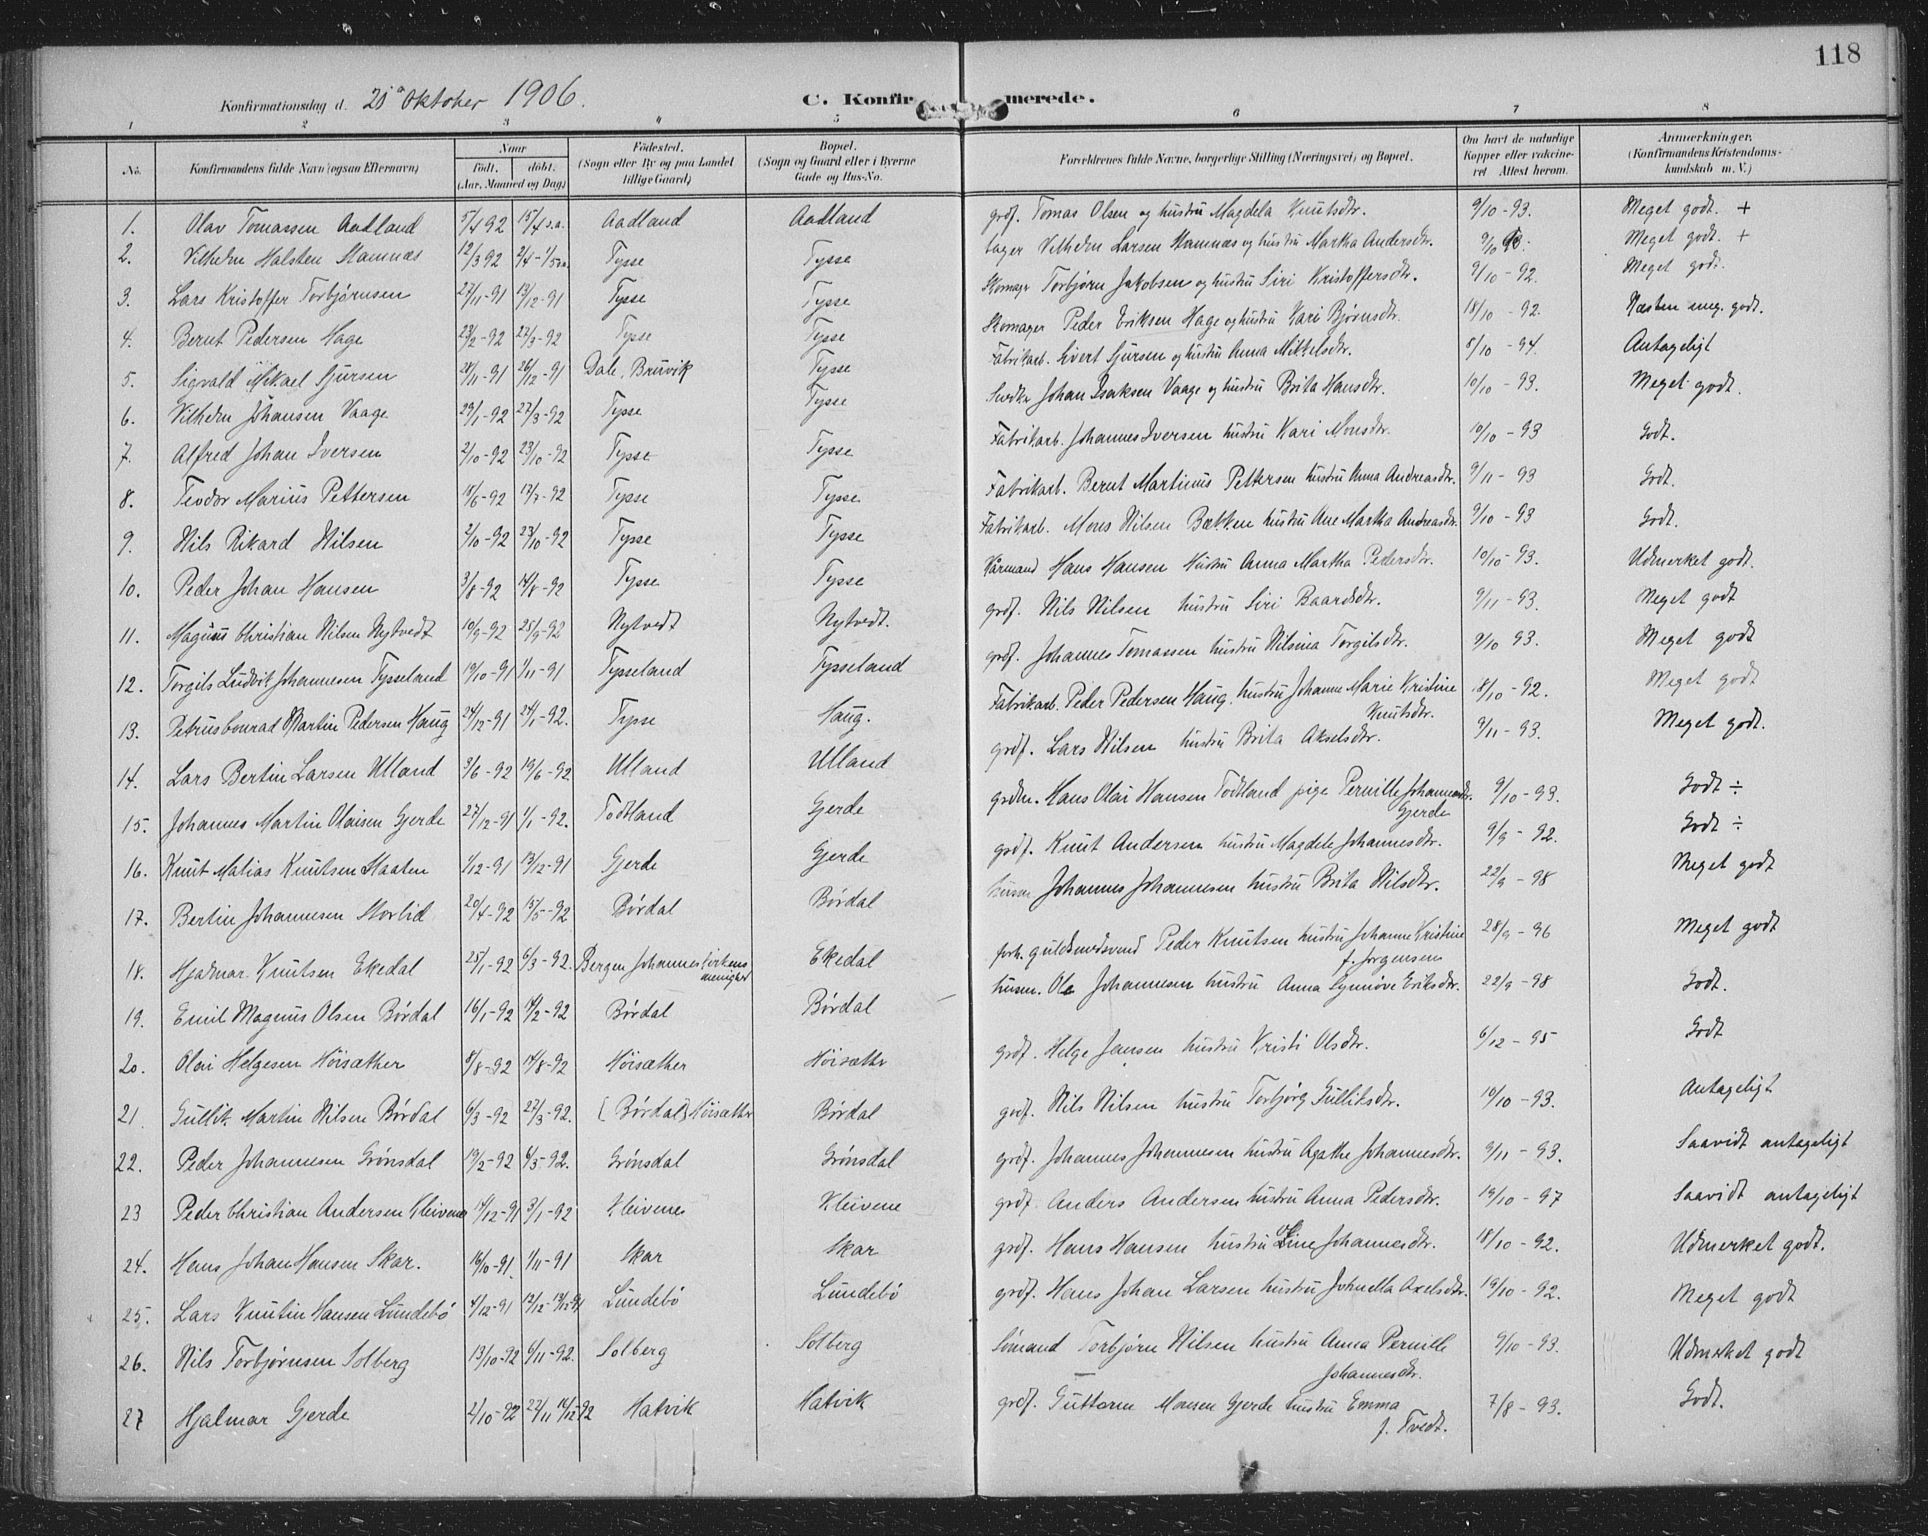 118
Konfirmationsdag d. 21de Oktober 1906. C. Konfirmerede.
1 2 3 4 5 6 7 8
No. Konfirmandens fulde Navn (ogsaa Efternavn) Naar Födt. döbt. (Aar, Maaned og Dag) Födested. (Sogn eller By og paa Landet tillige Gaard) Bopæl. (Sogn og Gaard eller i Byerne Gade og Hus-No. Forældrenes fulde Navne, borgerlige Stilling (Næringsvei) og Bopæl. Om havt de naturlige Kopper eller vakcineret Attest herom. Anmerkninger. (Konfirmandens Kristendomskundskab m. V.)
1. Olav Tomassen Aadland 5/4 92 15/4 s.a. Aadland Aadland grdf. Tomas Olsen og hustru Magdela Knutsdtr. 9/10-93. Meget godt. +
2. Vilhelm Halsten Stamnæs 12/3 92 2/4-1/5 s.a. Tysse Tysse Lager Vilhelm Larsen Stamnæs og hustru Martha Andersdtr. 9/10 93. Meget godt. +
3. Lars Kristoffer Torbjørnsen 27/11-91 13/12-91 Tysse Tysse Skomager Torbjørn Jakobsen og hustru Siri Kristoffersdtr. 9/10-92. Meget godt.
4. Bernt Pedersen Hage 23/2-92 27/3-92 Tysse Tysse Skomager Peder Eriksen Hage og hustru Kari Bjørnsdtr. 18/10-92. Næsten meg. godt.
5. Sigvald Mikael Sjursen 28/11-91 26/12-91 Dale, Bruvik Tysse Fabrikarb. Sivert Sjursen og hustru Anna Mikkelsdtr. 8/10-94. Antageligt
6. Vilhelm Johansen Vaage 29/1-92 27/3-92 Tysse Tysse Snedker Johan Isaksen Vaage og hustru Brita Hansdtr. 10/10-93. Meget godt.
7. Alfred Johan Iversen 2/10-92 23/10-92 Tysse Tysse Fabrikarb. Johannes Iversen hustru Kari Monsdtr. 10/10-93 Godt.
8. Teodor Marius Pettersen 18/6-92 17/7-92 Tysse Tysse Fabrikarb. Bernt Martinus Pettersen hustru Anna Andreasdtr. 9/11-93 Godt.
9. Nils Rikard Nilsen 2/10-92 23/10-92 Tysse Tysse Fabrikarb. Mons Nilsen Bækken hustru Ane Martha Andreasdtr. 9/10-93 Godt.
10. Peder Johan Hansen 3/8-92 14/8-92 Tysse Tysse Hans Hansen Hustru Anna Martha Pedersdtr. 10/10-93. Udmerket godt.
11. Magnus Christian Nilsen Nytvedt 10/9-92 25/9-92 Nytvedt Nytvedt. grdf. Nils Nilsen hustru Siri Baardsdtr. 9/11-93. Meget godt
12. Torgils Ludvik Johannesen Tysseland 19/10-91 1/11-91 Tysseland Tysseland grdf. Johannes Tomassen hustru Nilsina Torgilsdtr. 9/10 93. Meget godt
13. Petrus Conrad Martin Pedersen Haug 24/12-91 24/1-92. Tysse Haug. Fabrikarb. Peder Pedersen Haug. hustru Johanne Marie Kristine Knutsdtr. 18/10-92. Meget godt
14. Lars Bertin Larsen Ulland 3/6-92 19/6-92 Ulland Ulland grdf. Lars Nilsen hustru Brita Akselsdtr. 9/11-93. Meget godt.
15. Johannes Martin Olaisen Gjerde 27/12-91 1/1-92. Todtland Gjerde Hans Olai Hansen Todtland pige Pernille Johannesdtr. Gjerde 9/10-93. Godt ÷
16. Knut Matias Knutsen Staaten 1/12-91 13/12-91 Gjerde Gjerde grdf. Knut Andersen hustru Magdele Johannesdtr. 9/9-92. Godt ÷
17. Bertin Johannesen Storlid 20/4-92 15/5-92 Børdal Børdal husm Johannes Johannesen hustru Brita Nilsdtr. 22/9-98 Meget godt
18. Hjalmar Knutsen Ekedal 25/1-92 6/3-92. Bergen Johanneskirkens menighed Ekedal forh. guldsmedsvend Peder Knutsen hustru Johanne Kristine f. Jørgensen 28/9-96 Meget godt
19. Emil Magnus Olsen Børdal 16/1-92 14/2-92 Børdal Børdal husm. Ole Johannesen hustru Anna Synnøve Eriksdtr. 22/9-98 Godt.
20. Olai Helgesen Höisæther 8/8-92 14/8-92 Höisæther Höisæthr grdf. Helge Jansen hustru Kristi Olsdtr. 6/12-95 Godt
21. Gullik Martin Nilsen Børdal 6/3-92 27/3-92. (Børdal) Höisæthr Børdal grdf. Nils Nilsen hustru Torbjørg Gulliksdtr. 10/10-93. Antageligt
22. Peder Johannesen Grönsdal 19/2-92 6/3-92. Grönsdal Grönsdal grdf. Johannes Johannesen hustru Agathe Johannesdtr. 9/11-93. Saavidt antageligt
23 Peder Christian Andersen Kleivene 14/12-91 3/1-92 Kleivenes Kleivene grdf. Anders Andersen hustru Anna Pedersdtr. 19/10-97 Saavidt antageligt
24. Hans Johan Hansen Skar. 16/10-91. 1/11-91 Skar Skar grdf. Hans Hansen hustru Line Johannesdtr. 18/10-92. Udmerket godt.
25. Lars Knutin Hansen Lundebö 4/12-91 13/12-91 Lundebö Lundebö grdf. Hans Johan Larsen hustru Johnetta Axelsdtr. 19/10-92. Meget godt
26. Nils Torbjørnsen Solberg 13/10-92 6/11-92. Solberg Solberg Sömand Torbjørn Nilsen hustru Anna Pernille Johannesdtr. 9/10-93. Udmerket godt
27 Hjalmar Gjerde 2/10-92 27/11 14/12-92 Hatvik Hatvik grdf. Guttorm Monsen Gjerde hustru Emma f. Tvedt. 7/8-93. Godt.